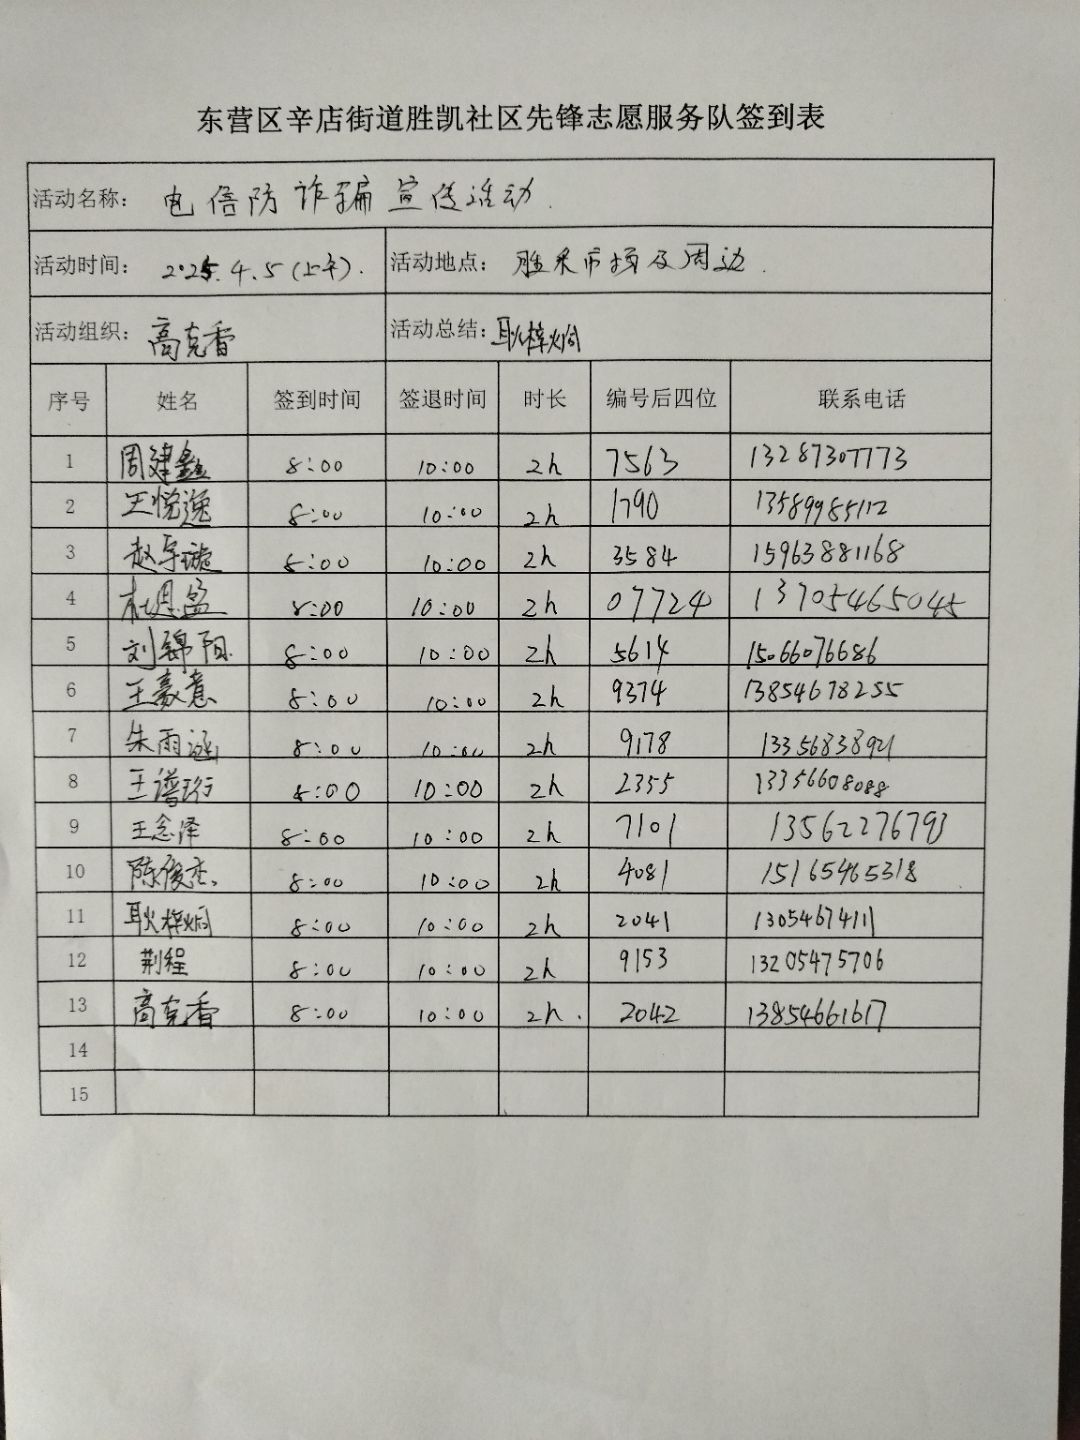 东营区辛店街道胜凯社区先锋志愿服务队签到表
活动名称： 电信防诈骗宣传活动.
活动时间： 2025.4.5(上午). 活动地点： 胜采市场及周边.
活动组织： 高克香 活动总结： 耿梓炯
序号 姓名 签到时间 签退时间 时长 编号后四位 联系电话
1 周建鑫 8:00 10:00 2h 7563 13287307773
2 王悦逸 8:00 10:00 2h 1790 13589985112
3 赵宇璇 8:00 10:00 2h 3584 15963881168
4 杜恩孟 8:00 10:00 2h 07724 13705465045
5 刘锦阳 8:00 10:00 2h 5614 15066076686
6 王豪意 8:00 10:00 2h 9374 13854678255
7 朱雨涵 8:00 10:00 2h 9178 13356838921
8 王谱珩 8:00 10:00 2h 2355 13356608088
9 王念泽 8:00 10:00 2h 7101 13562276793
10 陈俊杰. 8:00 10:00 2h 4081 15165465318
11 耿梓炯 8:00 10:00 2h 2041 13054674111
12 荆程 8:00 10:00 2h 9153 13205475706
13 高克香 8:00 10:00 2h. 2042 13854661617
14
15